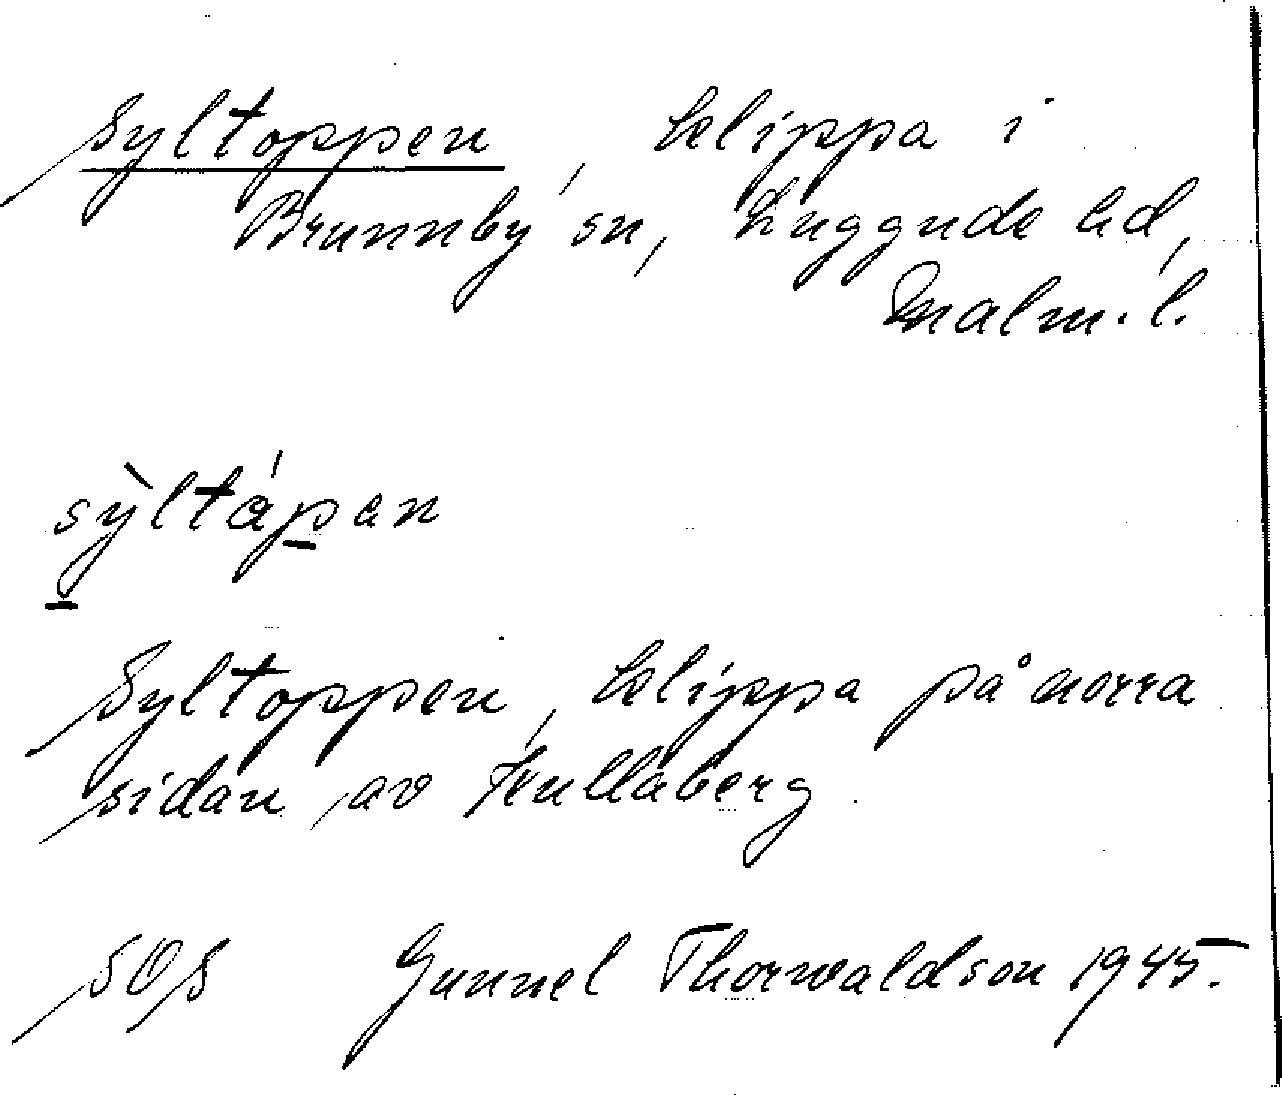 Syltoppen, klippa i
Brunnby sn, Luggude hd,
Malm. l.
sỳltápan
Syltoppen, klippa på norra
sidan av Kullaberg
SOS Gunnel Thorwaldson 1945.